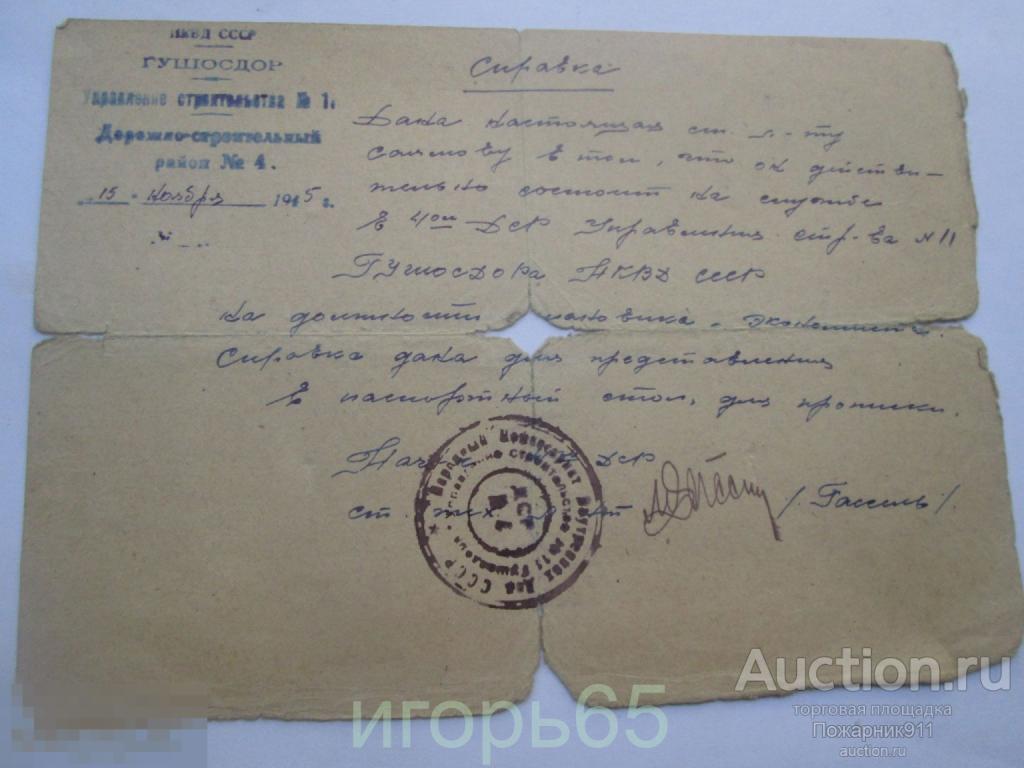 НКВД СССР
ГУШОСДОР
Управление строительства № 11
Дорожно-строительный
район № 4.
"15" ноября 1945 г.
Справка
Дана настоящая ст. л-ту
в том, что он действи-
тельно состоит на службе
в 4ом ДСР Управления стр-ва №11
ГУШОСДОРа НКВД СССР
на должности плановика-экономиста.
Справка дана для представления
в паспортный стол, для прописки.
ДСР
ст.
/Гассель/
Народный Комиссариат Внутренних Дел СССР
Управление строительства № 11 Гушосдора
ДСР
№ 4
игорь65
Auction.ru
торговая площадка
Пожарник911
auction.ru